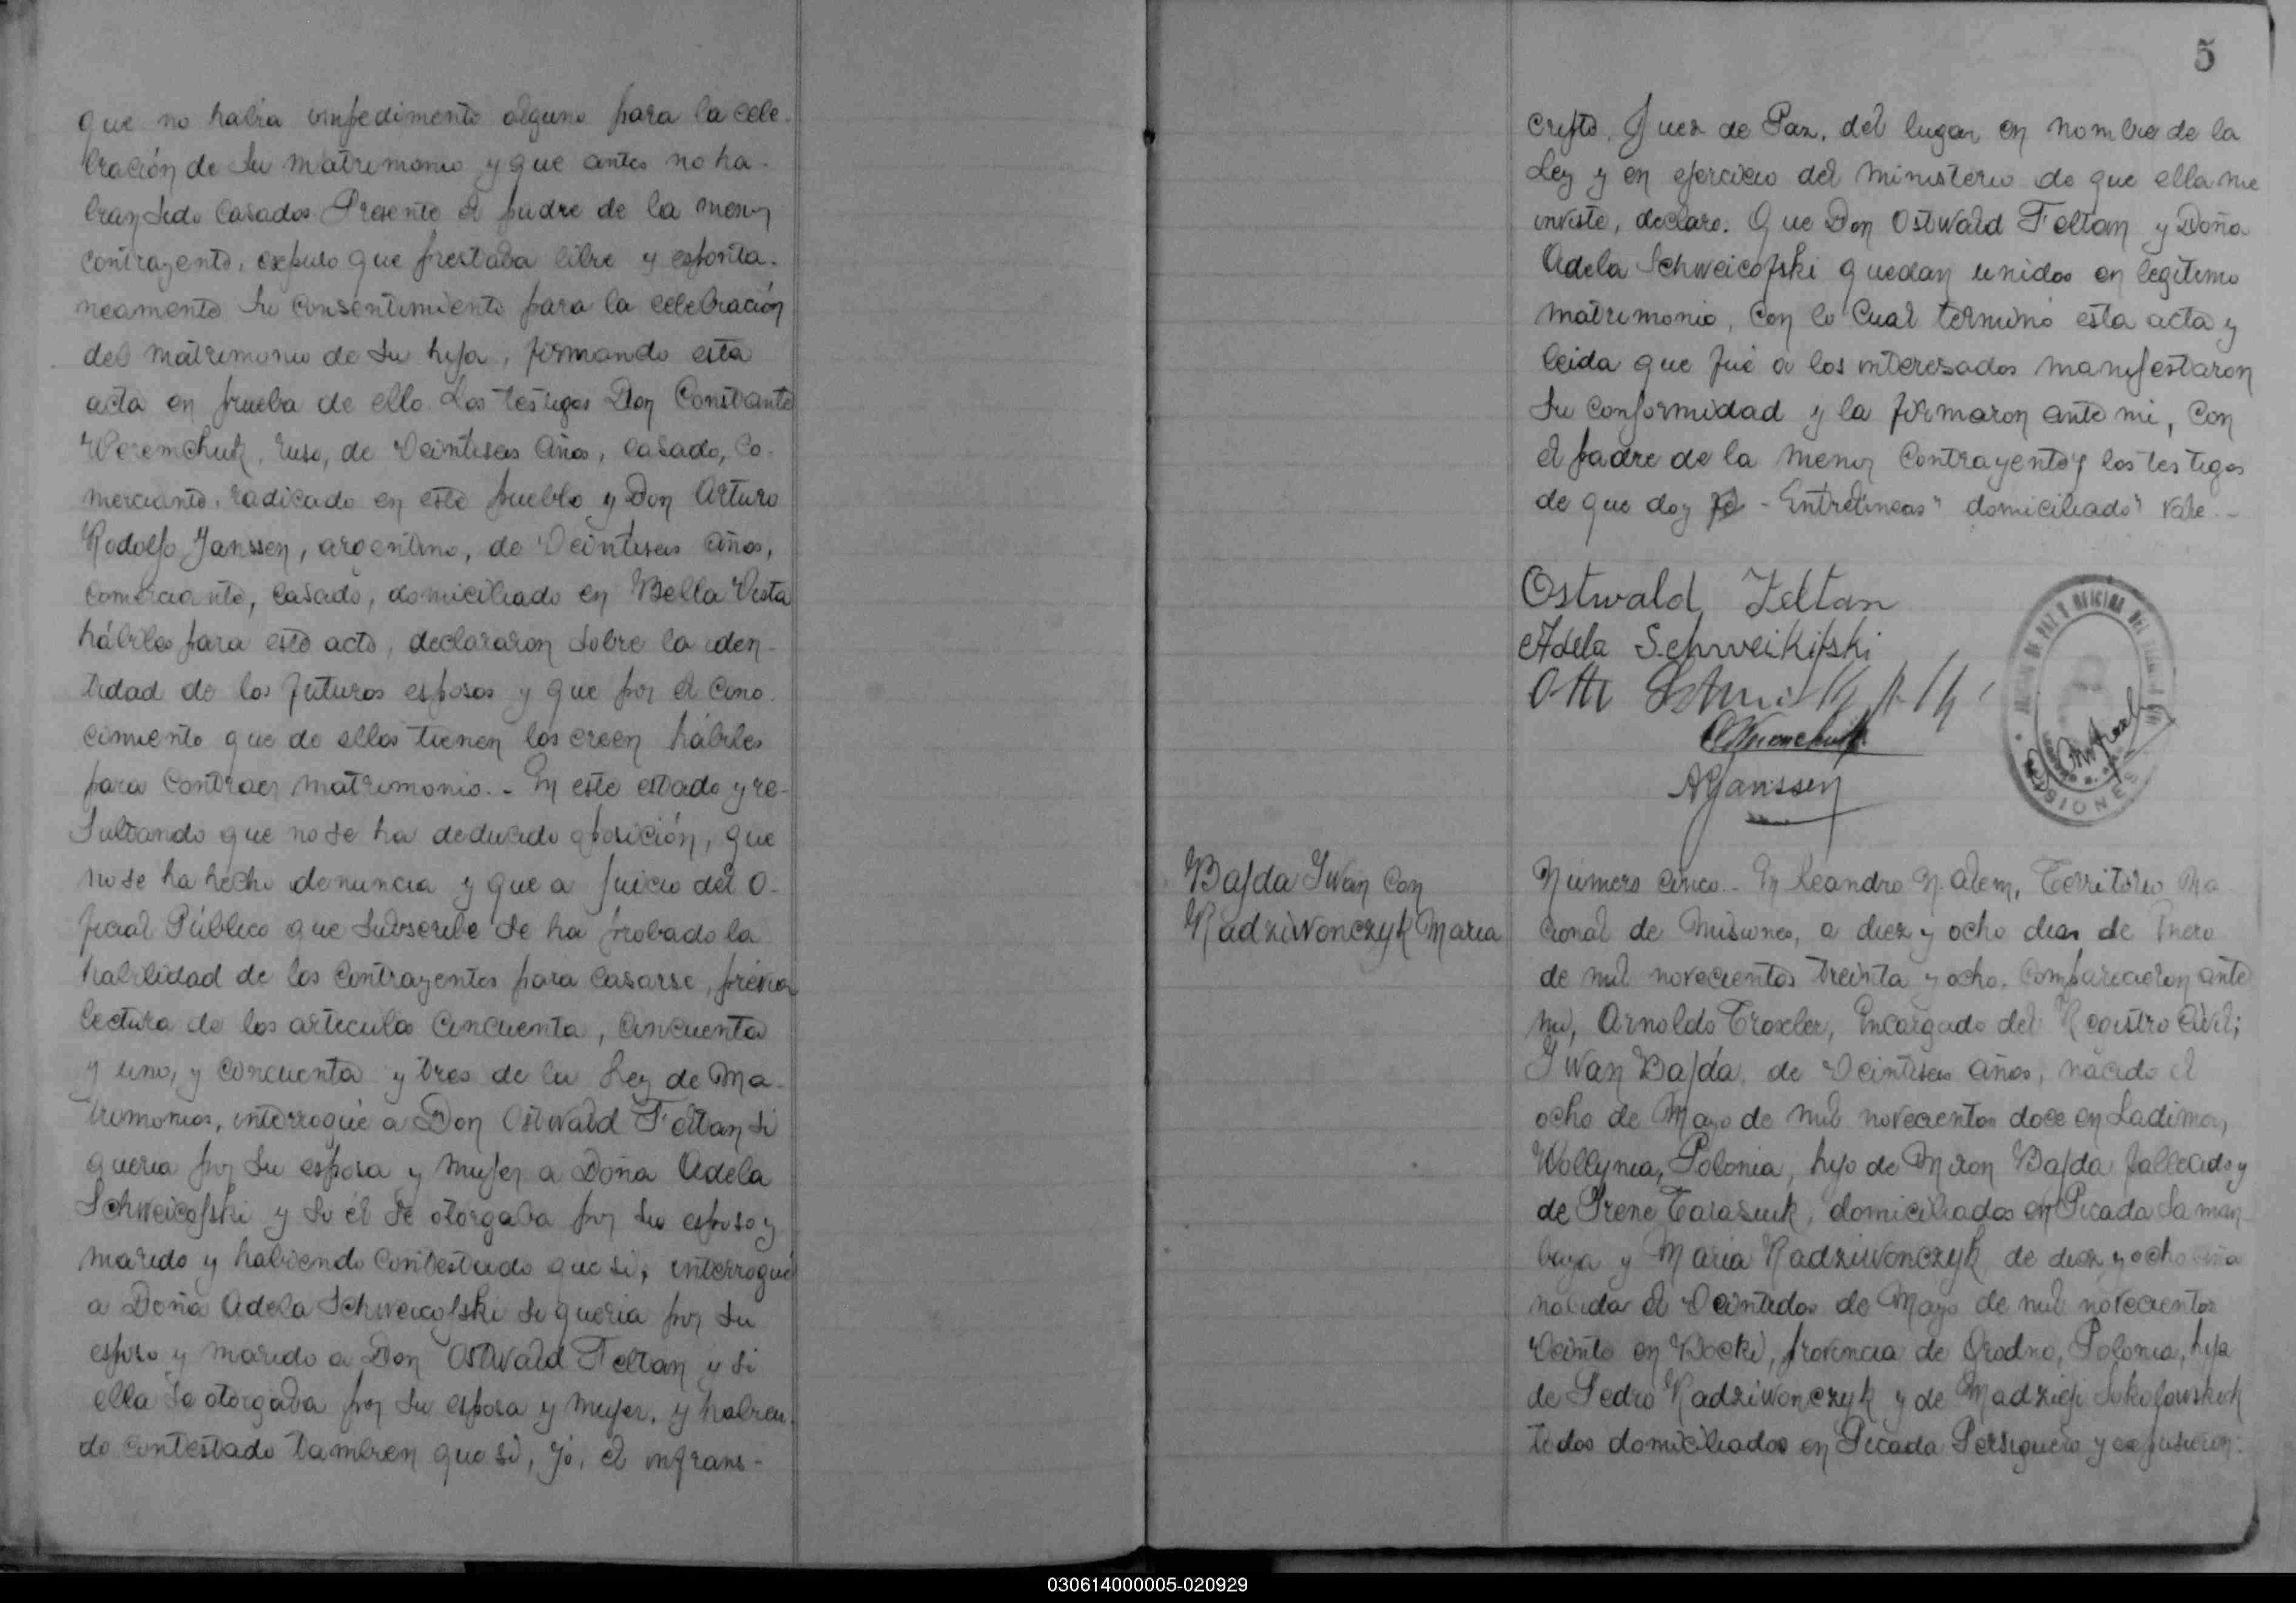 que no habia impedimento alguno para la cele-
bración de su matrimonio y que antes no ha-
bian sido casados. Presente el padre de la menor
contrayente, expuso que prestaba libre y esponta-
neamente su consentimiento para la celebración
del matrimonio de su hija, firmando esta
acta en prueba de ello. Los testigos Don Constante
Weremchuk, ruso, de veintiseis años, casado, co-
merciante, radicado en este pueblo y Don Arturo
Rodolfo Janssen, argentino, de veintiseis años,
comerciante, casado, domiciliado en Bella Vista
hábiles para este acto, declararon sobre la iden-
tidad de los futuros esposos y que por el cono-
cimiento que de ellos tienen los creen hábiles
para contraer matrimonio.- En este estado y re-
sultando que no se ha deducido oposición, que
no se ha hecho denuncia y que a juicio del O-
ficial Público que subscribe se ha probado la
habilidad de los contrayentes para casarse, prévia
lectura de los articulos cincuenta, cincuenta
y uno, y cincuenta y tres de la Ley de Ma-
trimonios, interrogué a Don Ostwald Feltan si
queria por su esposa y mujer a Doña Adela
Schweicofski y si él se otorgaba por su esposo y
marido y habiendo contestado que si, interrogué
a Doña Adela Schweicofski si queria por su
esposo y marido a Don Ostwald Feltan y si
ella se otorgaba por su esposa y mujer, y habien-
do contestado tambien que si, yó, el infrans-
5
cripto, Juez de Paz, del lugar en nombre de la
Ley y en ejercicio del ministerio de que ella me
inviste, declaro: Que Don Ostwald Feltan y Doña
Adela Schweicofski quedan unidos en legitimo
matrimonio, con lo cual terminó esta acta y
leida que fué a los interesados manifestaron
su conformidad y la firmaron ante mi, con
el padre de la menor contrayente y los testigos
de que doy fé - Entrelineas "domiciliado" vale.-
Ostwald Feltan
Adela Schweikifski
Otto
AJanssen
MISIONES
Bajda Iwan con
Radziwonczyk Maria
Número cinco.- En Leandro N. Alem, Territorio Na-
cional de Misiones, a diez y ocho dias de Enero
de mil novecientos treinta y ocho, comparecieron ante
mi, Arnoldo Troxler, Encargado del Registro Civil;
Iwan Bajda, de veintiseis años, nacido el
ocho de Mayo de mil novecientos doce en Ladimir,
Wollynia, Polonia, hijo de Miron Bajda fallecido y
de Irene Tarasiuk, domiciliados en Picada Saman-
baya y Maria Radziwonczyk de diez y ocho años
nacida el veintidos de Mayo de mil novecientos
veinte en Wocki, provincia de Grodno, Polonia, hija
de Pedro Radziwonczyk y de Madzieji
todos domiciliados en Picada Persiguero y expusieron:
030614000005-020929